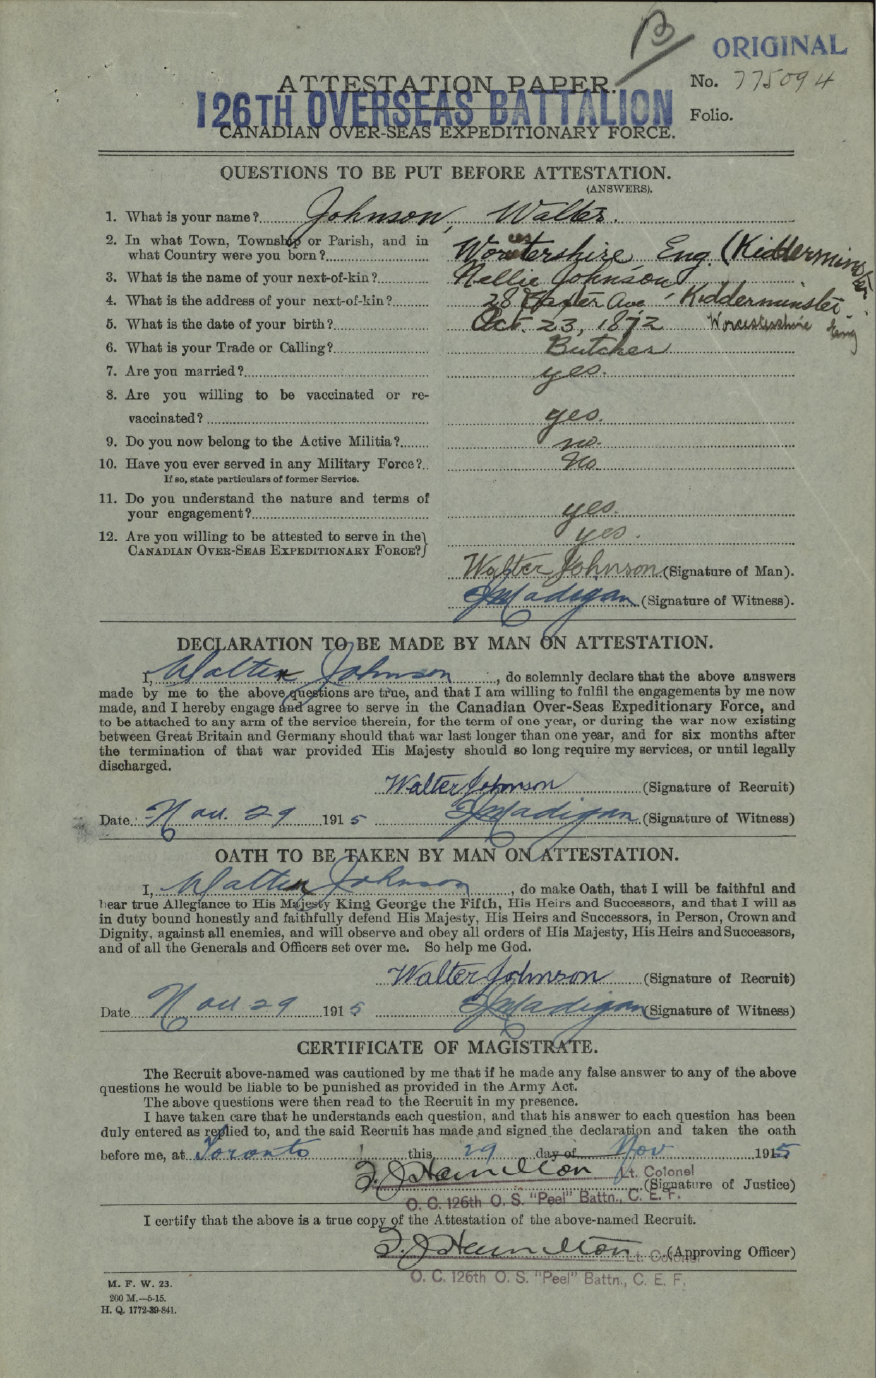 B
ORIGINAL
ATTESTATION PAPER.
No. 775094
126TH OVERSEAS BATTALION
Folio.
CANADIAN OVER-SEAS EXPEDITIONARY FORCE.
QUESTIONS TO BE PUT BEFORE ATTESTATION.
(ANSWERS).
1. What is your name? Johnson, Walter.
2. In what Town, Township or Parish, and in
what Country were you born? Worcestershire Eng. (Kidderminster.
3. What is the name of your next-of-kin? Nellie Johnson
4. What is the address of your next-of-kin? 28 Ave, Kidderminster.
Worcestershire Eng
5. What is the date of your birth? Oct. 23, 1872
6. What is your Trade or Calling? Butcher
7. Are you married? yes.
8. Are you willing to be vaccinated or re-
vaccinated? yes.
9. Do you now belong to the Active Militia? no.
10. Have you ever served in any Military Force? No
If so, state particulars of former Service.
11. Do you understand the nature and terms of
your engagement? yes.
12. Are you willing to be attested to serve in the
CANADIAN OVER-SEAS EXPEDITIONARY FORCE? yes.
Walter Johnson (Signature of Man).
J Madigan (Signature of Witness).
DECLARATION TO BE MADE BY MAN ON ATTESTATION.
I, Walter Johnson, do solemnly declare that the above answers
made by me to the above questions are true, and that I am willing to fulfil the engagements by me now
made, and I hereby engage and agree to serve in the Canadian Over-Seas Expeditionary Force, and
to be attached to any arm of the service therein, for the term of one year, or during the war now existing
between Great Britain and Germany should that war last longer than one year, and for six months after
the termination of that war provided His Majesty should so long require my services, or until legally
discharged.
Walter Johnson (Signature of Recruit)
Date Nov. 29 1915 J Madigan (Signature of Witness)
OATH TO BE TAKEN BY MAN ON ATTESTATION.
I, Walter Johnson, do make Oath, that I will be faithful and
bear true Allegiance to His Majesty King George the Fifth, His Heirs and Successors, and that I will as
in duty bound honestly and faithfully defend His Majesty, His Heirs and Successors, in Person, Crown and
Dignity, against all enemies, and will observe and obey all orders of His Majesty, His Heirs and Successors,
and of all the Generals and Officers set over me. So help me God.
Walter Johnson (Signature of Recruit)
Date Nov 29 1915 J Madigan (Signature of Witness)
CERTIFICATE OF MAGISTRATE.
The Recruit above-named was cautioned by me that if he made any false answer to any of the above
questions he would be liable to be punished as provided in the Army Act.
The above questions were then read to the Recruit in my presence.
I have taken care that he understands each question, and that his answer to each question has been
duly entered as replied to, and the said Recruit has made and signed the declaration and taken the oath
before me, at Toronto this 29 day of Nov. 1915
F. J. Hamilton Lt. Colonel
(Signature of Justice)
O. C. 126th O. S. "Peel" Battn., C. E. F.
I certify that the above is a true copy of the Attestation of the above-named Recruit.
F. J. Hamilton Lt. Colonel (Approving Officer)
O. C. 126th O. S. "Peel" Battn., C. E. F.
M. F. W. 23.
200 M.—5-15.
H. Q. 1772-39-841.